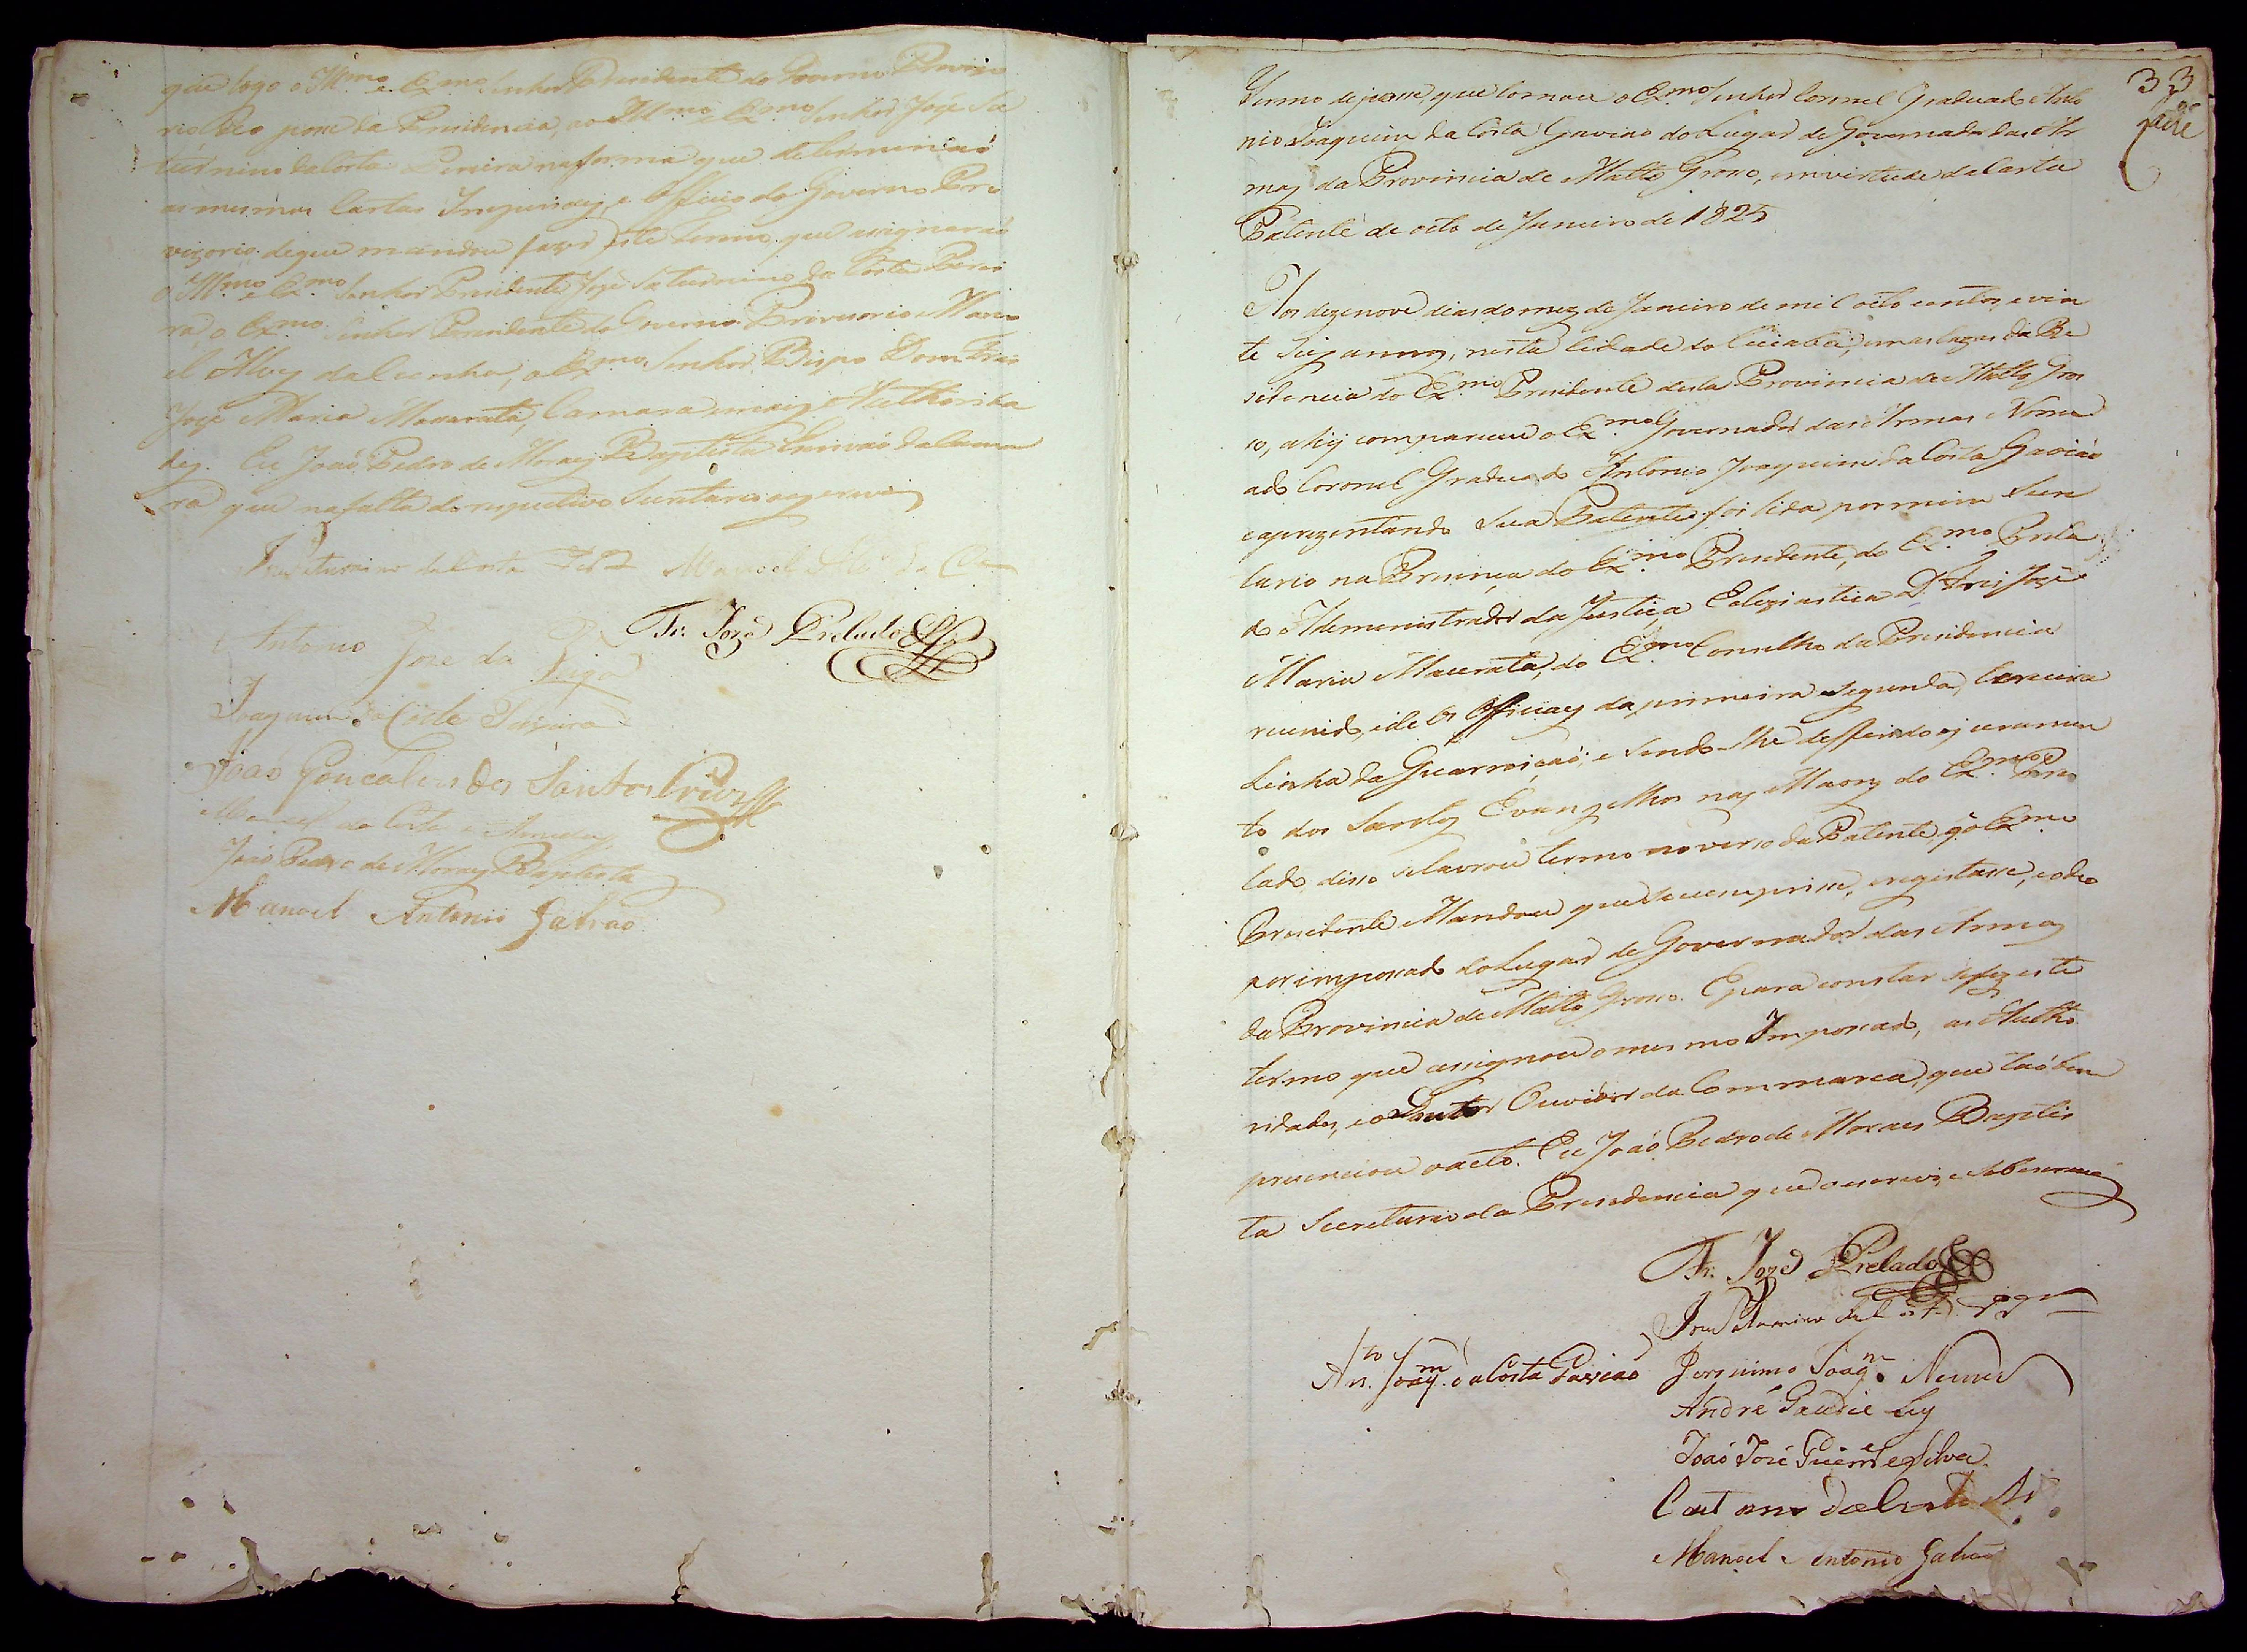 que logo o Ill.mo e Ex.mo Senhor Presidente do Governo Provizo
rio deo posse da Presidencia, ao Ill.mo e Ex.mo Senhor José Sa
turnino da Costa Pereira na forma que determinaó
as mesmas Cartas Imperiaes, e Officio do Governo Pro
vizorio. de que mandou fazer este Termo que assignaraó
o Ill.mo e Ex.mo Senhor Presidente José Saturnino da Costa Perei
ra, o Ex.mo Senhor Presidente do Governo Provisorio Mano
el Alves da Cunha, o Ex.mo Senhor Bispo Dom Frei
José Maria Macerata, Camara e mais Authorida
des. Eu Joaó Pedro de Moraes Baptista Escrivaó da Cama
ra que na falta do respectivo Secretario o escrevi
José Saturnino da Costa Per.a Manoel Al.z da C.a
Fr. Jozé Prelado
Antonio José da Veiga
Joaquim da Coste Siqueira
Joaó Goncalves dos Santos Cruz
Manoel da Costa e Arruda
Joaó Pedro de Moraes Baptista
Manoel Antonio Galvaó
33
Termo de posse, que tomou o Ex.mo Senhor Coronel Graduado Anto
nio Joaquim da Costa Gaviaó do Lugar de Governador das Ar
mas da Provincia de Matto Grosso, em virtude da Carta
Patente de oito de Janeiro de 1825
Aos dezenove dias do mez de Janeiro de mil oito centos, e vin
te seis annos, nesta Cidade do Cuiabá, em as Cazas da Re
sidencia do Ex.mo Presidente desta Provincia de Matto Gros
so, ahi compareceu o Ex.mo Governador das Armas Nome
ado Coronel Graduado Antonio Joaquim da Costa Gaviaó
e aprezentando Sua Patente foi lida por mim Secre
tario na Prezença do Ex.mo Presidente, do Ex.mo Prela
do Administrador da Justiça Eclesiastica D. Frei José
Maria Macerata, do Ex.mo Conselho da Presidencia
reunido, e de os Officiaes da primeira segunda, e terceira
Linha da Guarniçaó; e sendo-lhe defferido o juramen
to dos Santos Evangelhos nas Maons do Ex.mo Pre
lado, disso se lavrou termo no verso da Patente, q̃ o Ex.mo
Presidente Mandou que se cumprisse, e registasse, e o deo
por impossado do Lugar de Governador das Armas
da Provincia de Matto Grosso. E para constar se fez este
termo que assignou o mesmo Impossado, as Autho
ridades, e o Doutor Ouvidor da Commarca, que taóbem
presenciou o acto. Eu Joaó Pedro de Moraes Baptis
ta Secretario da Presidencia que o escrevi, e sobescrevi
Fr. Jozé Prelado
José Saturnino da Costa Per.a
An.to Joaq.m da Costa Gaviaó
Jeronimo Joaq.m Nunes
André Gaudie Ley
Joaó José Guim.es e Silva
Caetano da Costa Ar.o
Manoel Antonio Galvaó